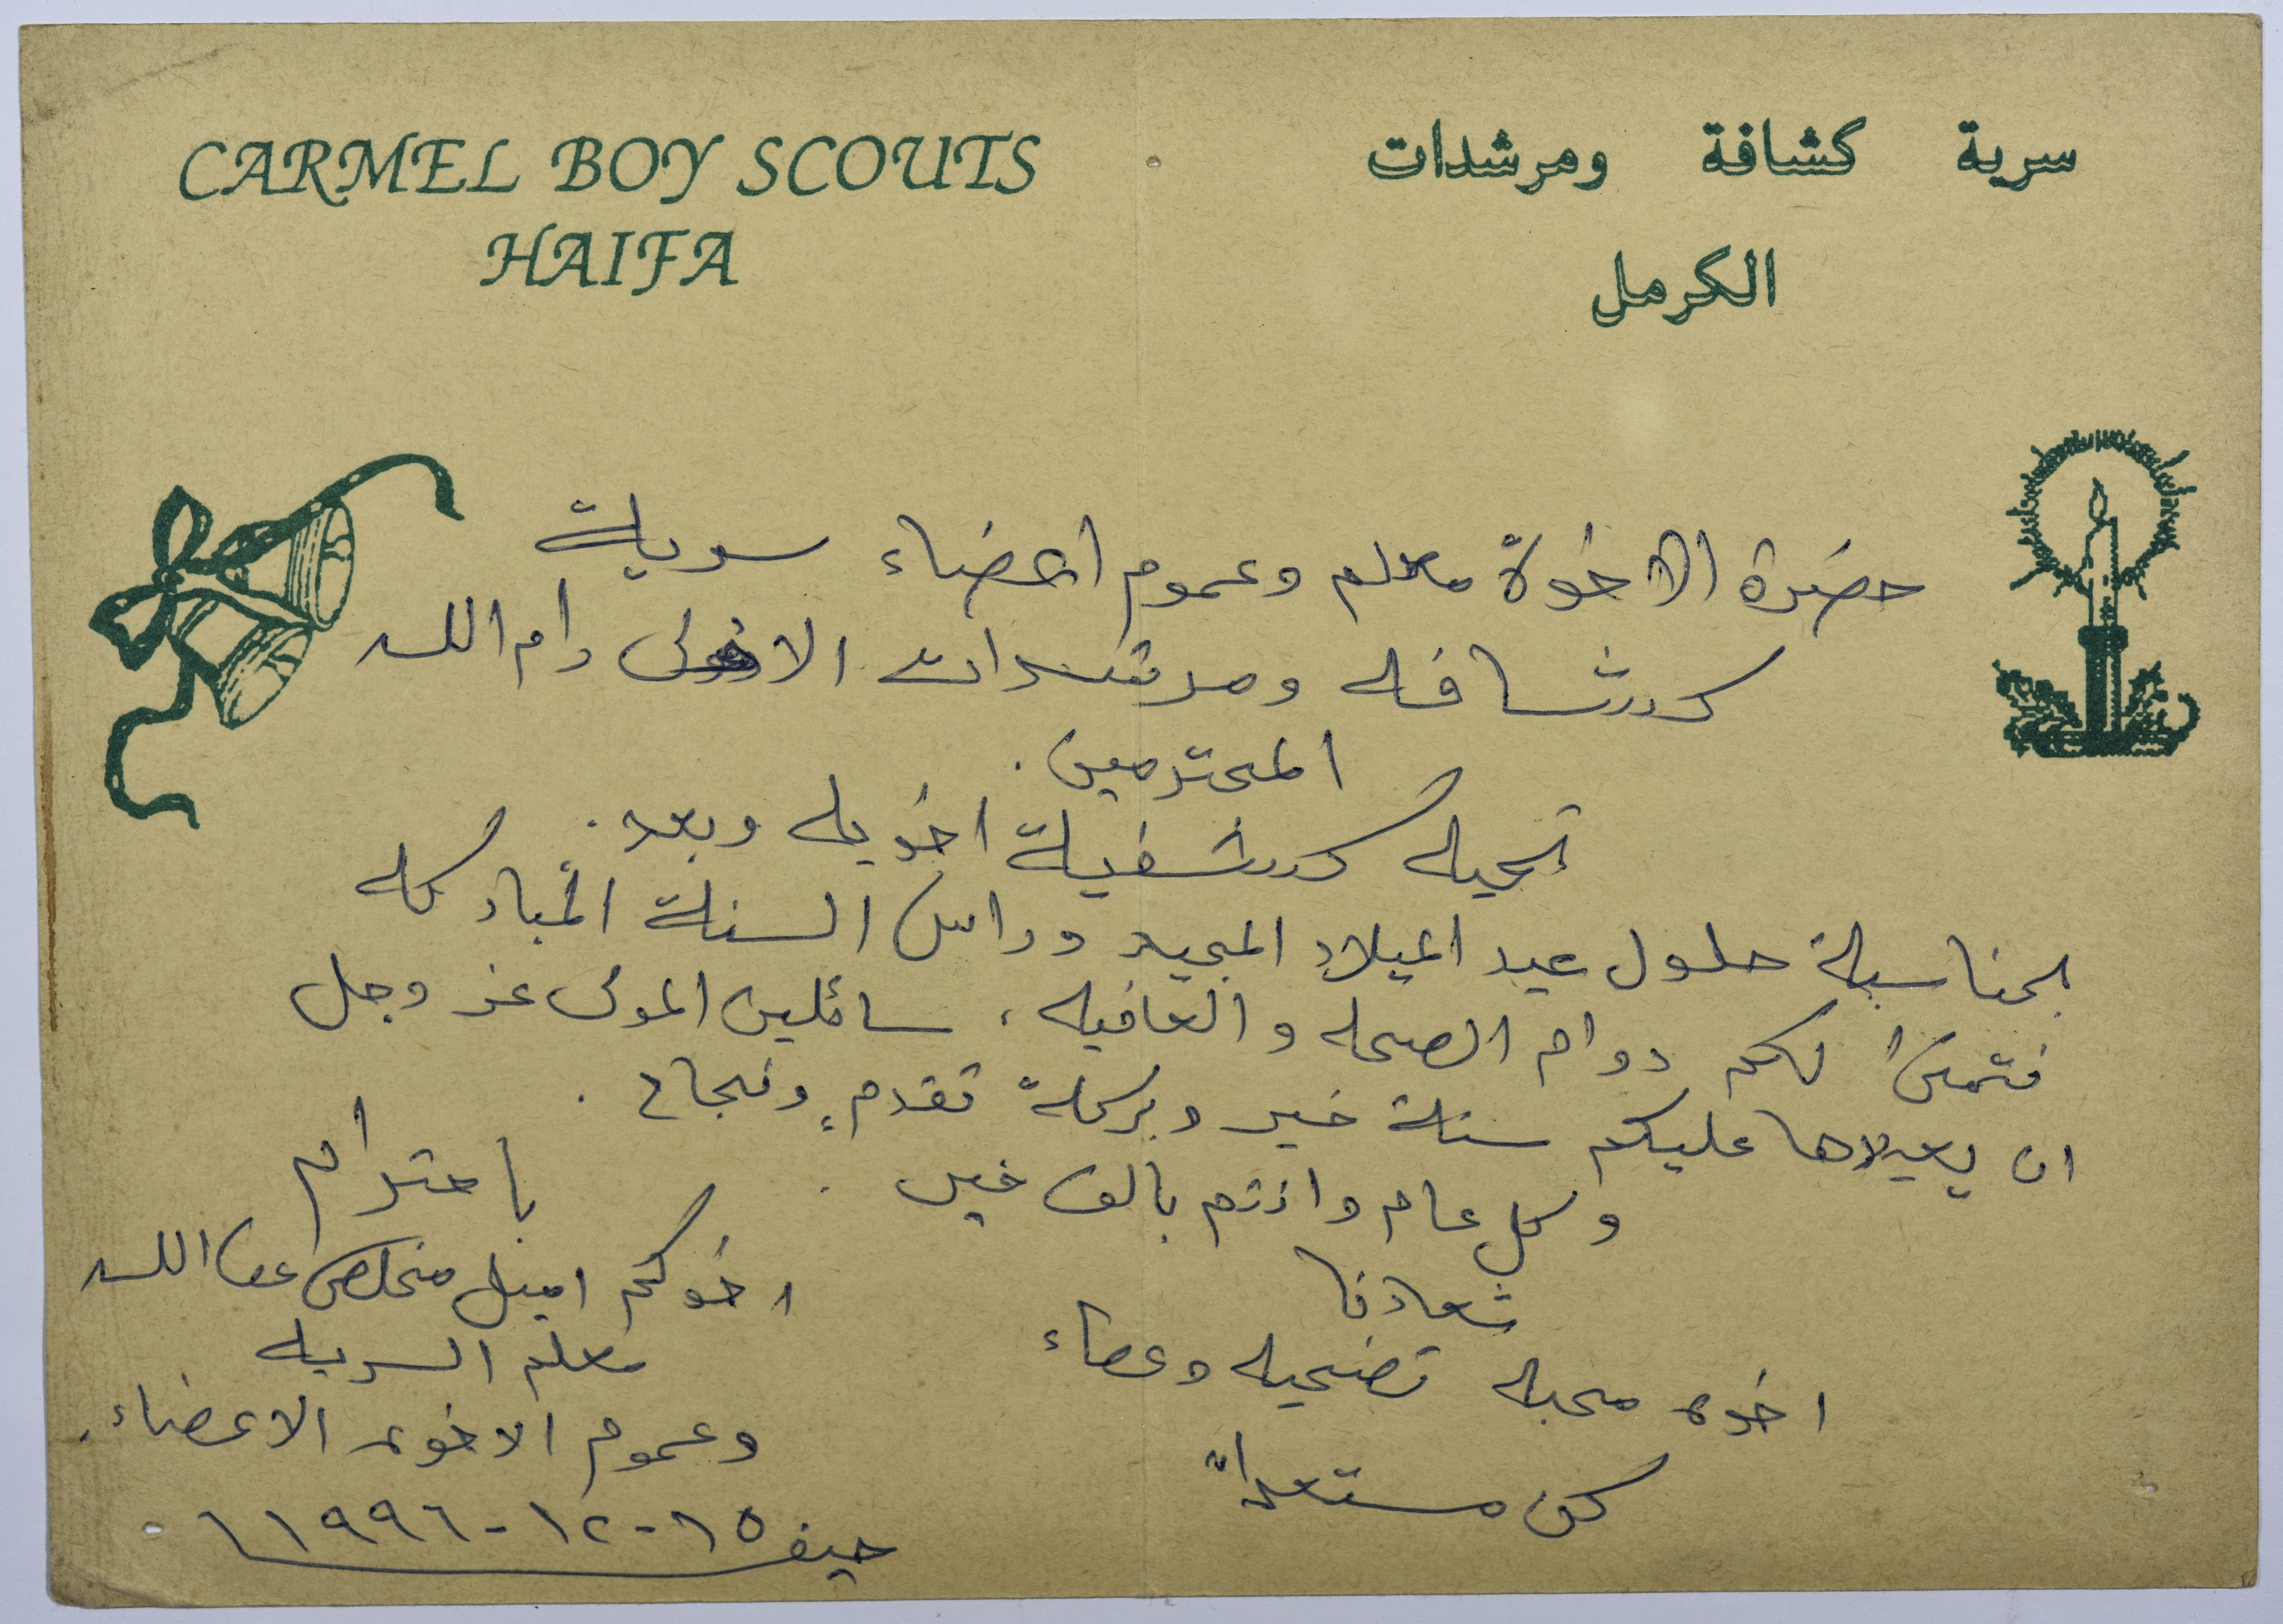 CARMEL BOY SCOUTS
HAIFA
سرية كشافة ومرشدات
الكرمل
حضرة الاخوة معلم وعموم اعضاء سرية
كشافه ومرشدات الاولى رام الله
المحترمين.
تحيه كشفية اخويه وبعد.
بمناسبة حلول عيد الميلاد المجيد وراس السنة المباركه
نتمنى لكم دوام الصحه والعافيه، سائلين المولى عز وجل
ان يعيدها عليكم سنة خير وبركة تقدمٍ ونجاح.
وكل عام وانتم بالف خير.
باحترام
شعارنا
اخوه محبه تضحيه وعطاء
كن مستعداً
اخوكم اميل مخلص
معلم السريه
وعموم الاخوه الاعضاء.
حيفا ١٥-١٢-١٩٩٦